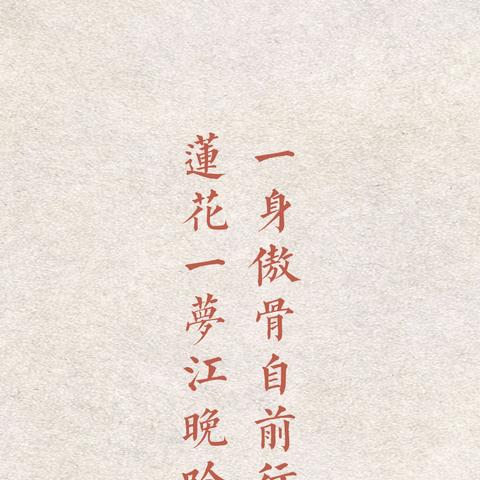 一身傲骨自前行
蓮花一夢江晚